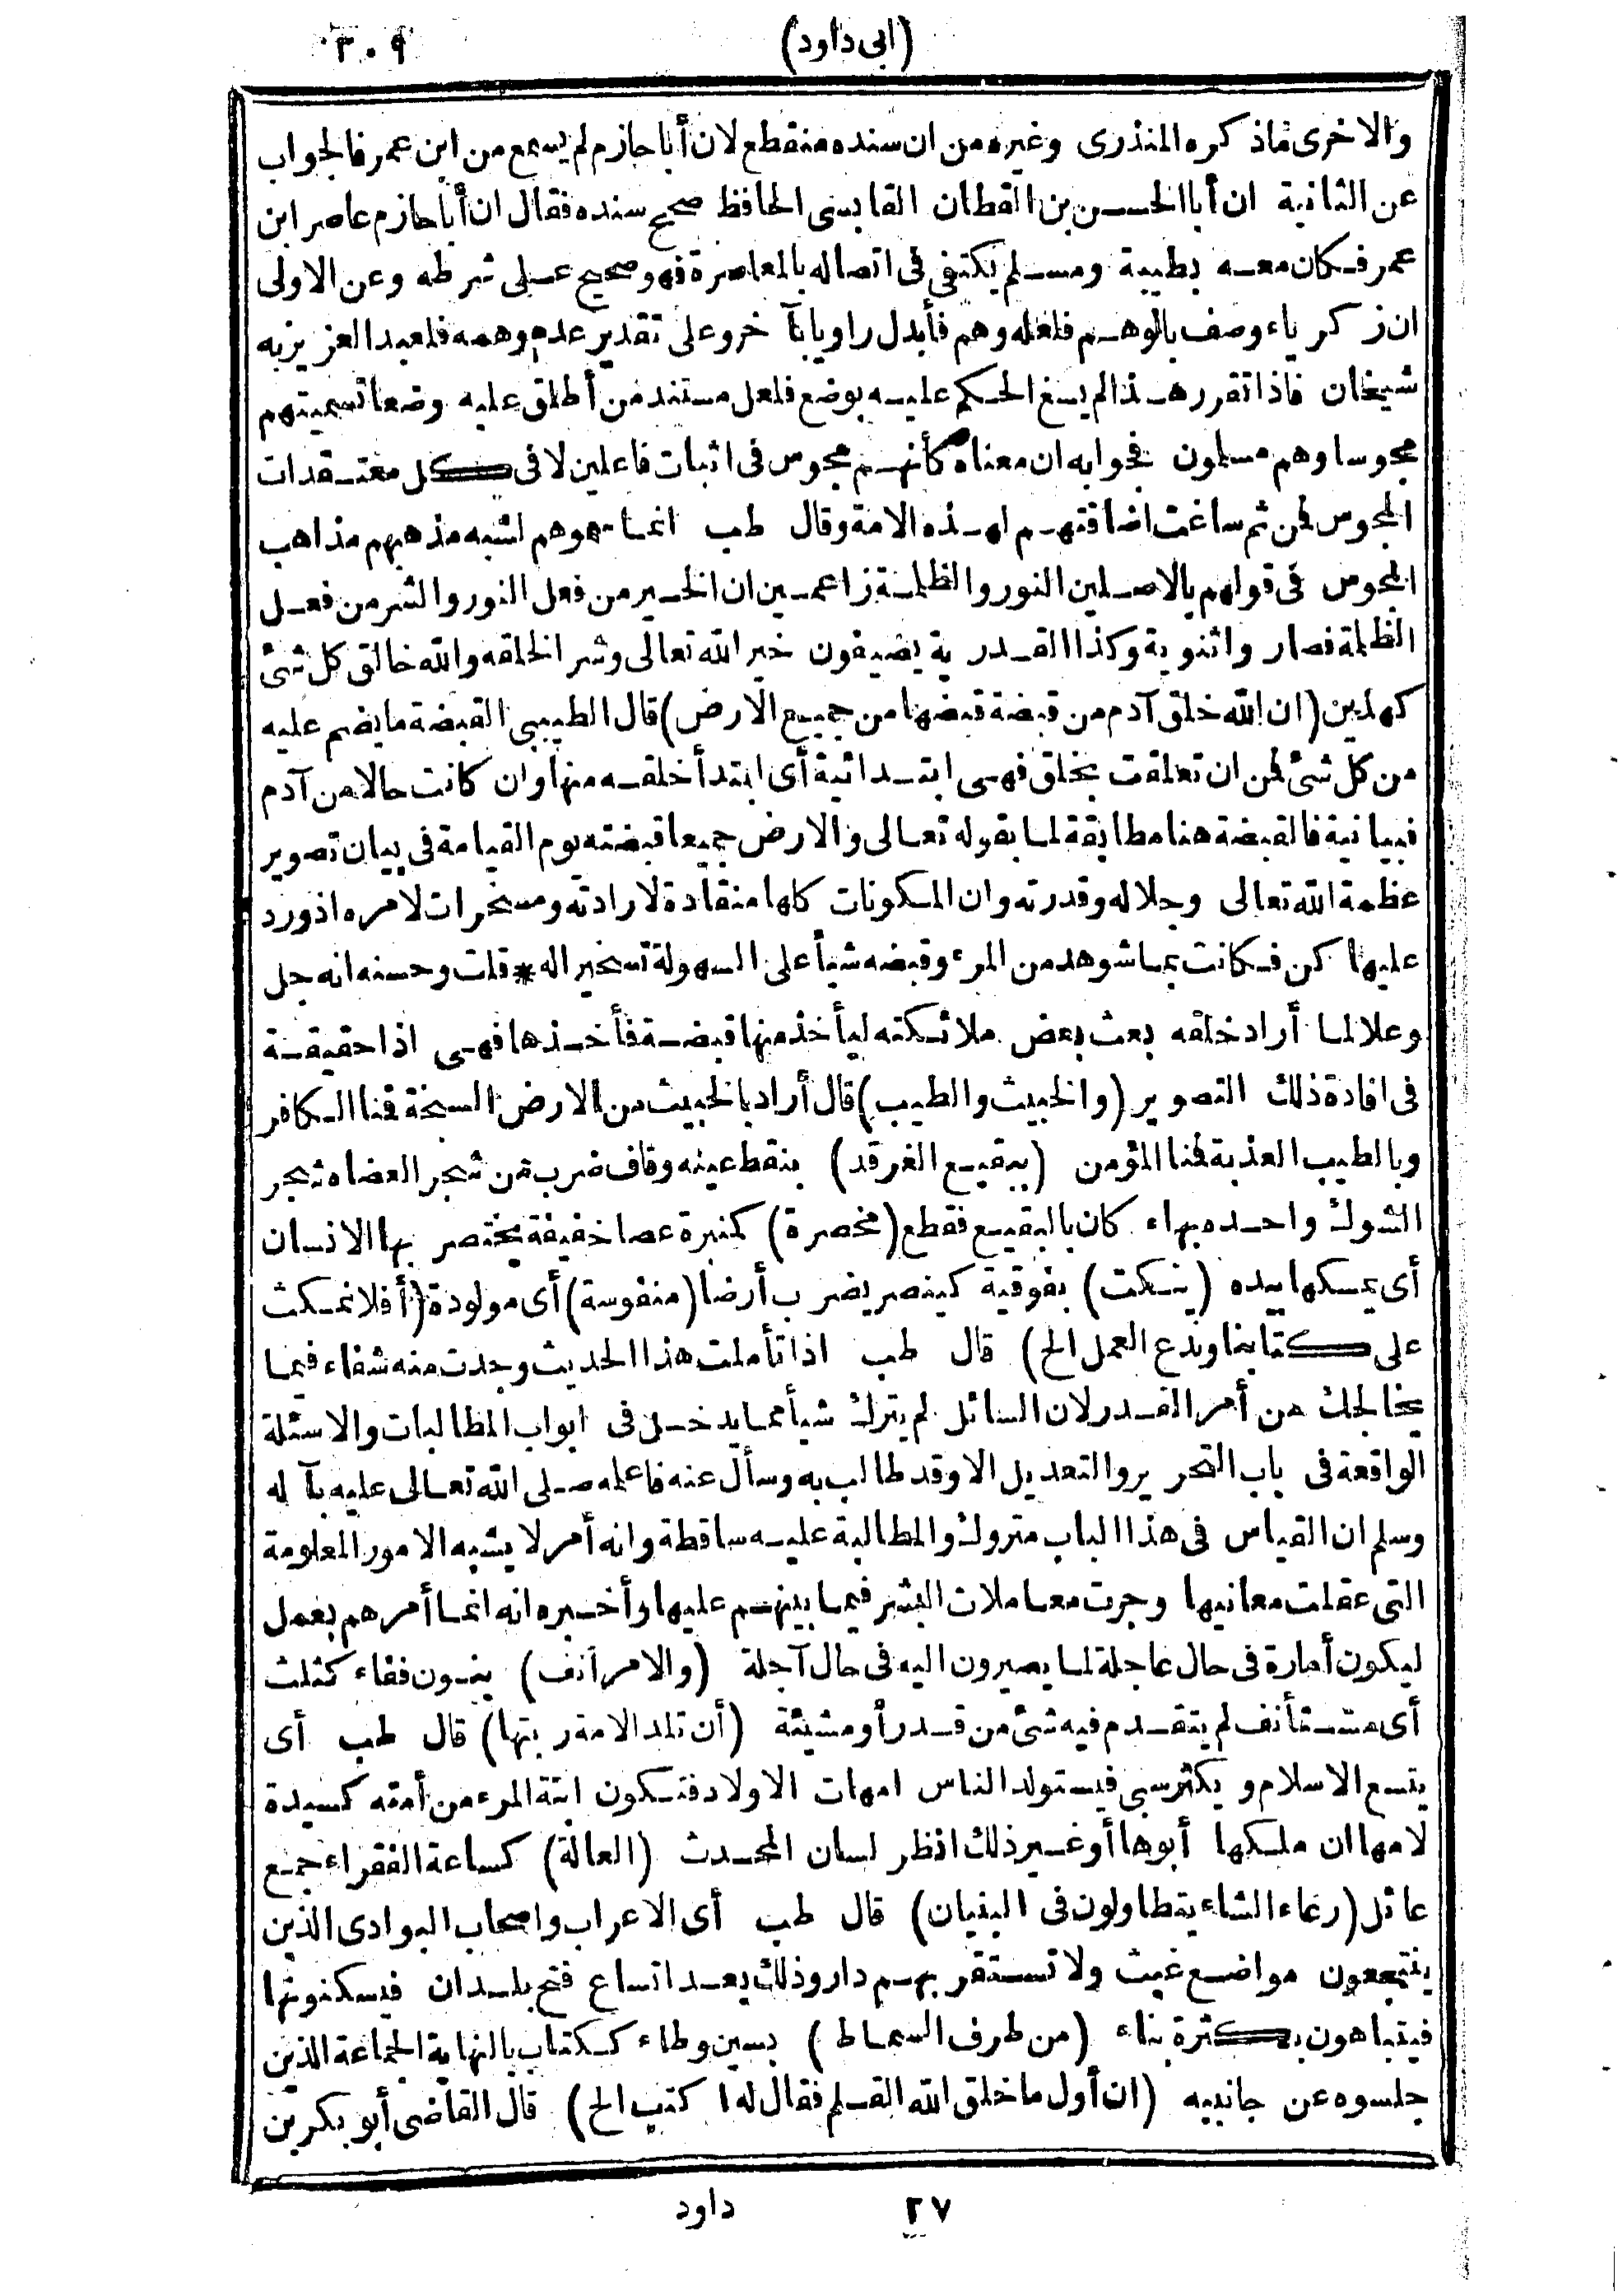 (ابى داود) ٢٠٩
والاخرى ماذكره المنذرى وغيره من ان سنده منقطع لان أباحازم لم يسمع من ابن عمر فالجواب
عن الثانية ان أباالحسن بن القطان القابسى الحافظ صحيح سنده فقال ان أباحازم عاصر ابن
عمر فكان معه بطيبة ومسلم يكتفى فى اتصاله بالمعاصرة فهو صحيح على شرطه وعن الاولى
ان زكرياء وصف بالوهم فلعله وهم فأبدل راويا بآخر وعلى تقدير عدم وهمه فلعبد العزيز به
شيخان فاذا تقرر هذا لم يسغ الحكم عليه بوضع فلعل مستند من أطلق عليه وضعا تسميتهم
مجوسا وهم مسلمون فجوابه ان معناه كأنهم مجوس فى اثبات فاعلين لا فى كل معتقدات
المجوس فمن ثم ساغت اضافتهم لهذه الامة وقال طب انما هموهم لشبه مذهبهم مذاهب
المجوس فى قولهم بالاصلين النور والظلمة زاعمين ان الخير من فعل النور والشر من فعل
الظلمة فصار واثنوية وكذا القدرية يضيفون خير الله تعالى وشر الخلقه والله خالق كل شئ
كهذين (ان الله خلق آدم من قبضة قبضها من جميع الارض) قال الطيبى القبضة ما يضم عليه
من كل شئ فمن ان تعلقت بخلق فهى ابتدائية أى ابتدأ خلقه منها وان كانت حالا من آدم
فبيانية فالقبضة هنا مطابقة لما بقوله تعالى والارض جميعا قبضته يوم القيامة فى بيان تصوير
عظمة الله تعالى وجلاله وقدرته وان المكونات كلها منقادة لارادته ومسخرات لامره اذ ورد
عليها كن فكانت بما شوهد من المرء وقبضه شيأ على السهولة تسخير اله * قلت وحسنه انه جل
وعلا لما أراد خلقه بعث بعض ملائكته ليأخذ منها قبضة فأخذها فهى اذا حقيقة
فى افادة ذلك التصوير (والخبيث والطيب) قال أراد بالخبيث من الارض السبخة فمنا الكافر
وبالطيب العذبة فمنا المؤمن (ببقيع الغرقد) بنقط عينه وقاف ضرب من شجر العضاه شجر
الشوك واحده بهاء كان بالبقيع فقطع (مخصرة) كمنبرة عصا خفيفة يختصر بها الانسان
أى يمسكها بيده (ينكت) بفوقية كينصر يضرب أرضا (منفوسة) أى مولودة (أفلا نمكث
على كتابنا وندع العمل الخ) قال طب اذا تأملت هذا الحديث وجدت منه شفاء فيما
يخالجك من أمر القدر لان السائل لم يترك شيأ مما يدخل فى ابواب المطالبات والاسئلة
الواقعة فى باب التحرير والتعديل الا وقد طالب به وسأل عنه فاعلمه صلى الله تعالى عليه بآله
وسلم ان القياس فى هذا الباب متروك والمطالبة عليه ساقطة وانه أمر لا يشبه الامور المعلومة
التى عقلت معانيها وجرت معاملات البشر فيما بينهم عليها وأخبره انه انما أمرهم بعمل
ليكون أمارة فى حال عاجلة لما يصيرون اليه فى حال آجلة (والامر آنف) بنون ففاء كثلث
أى مستأنف لم يتقدم فيه شئ من قدر أو مشيئة (أن تلد الامة ربتها) قال طب أى
يتسع الاسلام ويكثر سبى فيستولد الناس امهات الاولاد فتكون ابنة المرء من أمته كسيدة
لامها ان ملكها أبوها أو غير ذلك انظر لسان المحدث (العالة) كساعة الفقراء جمع
عائل (رعاء الشاء يتطاولون فى البنيان) قال طب أى الاعراب واصحاب البوادى الذين
ينتجعون مواضع غيث ولا تستقر بهم دار وذلك بعد اتساع فتح بلدان فيسكنونها
فيتباهون بكثرة بناء (من طرف السماط) بسين وطاء ككتاب بالنهاية الجماعة الذين
جلسوه عن جانبيه (ان أول ما خلق الله القلم فقال له اكتب الخ) قال القاضى أبو بكر بن
٢٧ داود